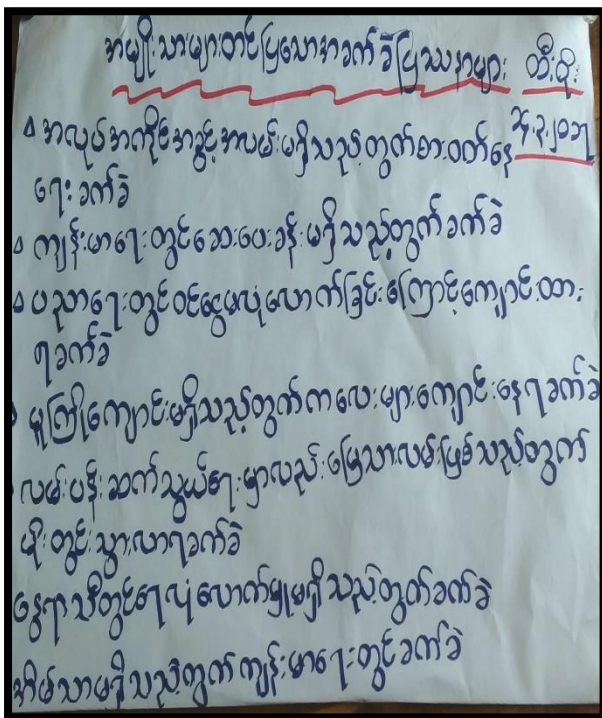 အမျိုးသားများတင်ပြသောအခက်ခဲပြဿနာများ တီးဖိုး
၃၄.၃.၂၀၁၃
အလုပ်အကိုင်အခွင့်အလမ်းမရှိသည့်တွက်စားဝတ်နေ
ရေးခက်ခဲ
ကျန်းမာရေးတွင်ဆေးပေးခန်းမရှိသည့်တွက်ခက်ခဲ
ပညာရေးတွင်ဝင်ငွေမလုံလောက်ခြင်းကြောင့်ကျောင်းထား
ရခက်ခဲ
မူကြိုကျောင်းမရှိသည့်တွက်ကလေးများကျောင်းနေရခက်ခဲ
လမ်းပန်းဆက်သွယ်ရေးမှာလည်းမြေသားလမ်းဖြစ်သည့်တွက်
မိုးတွင်းသွားလာရခက်ခဲ
နွေရာသီတွင်ရေလုံလောက်မှုမရှိသည့်တွက်ခက်ခဲ
အိမ်သာမရှိသည့်တွက်ကျန်းမာရေးတွင်ခက်ခဲ